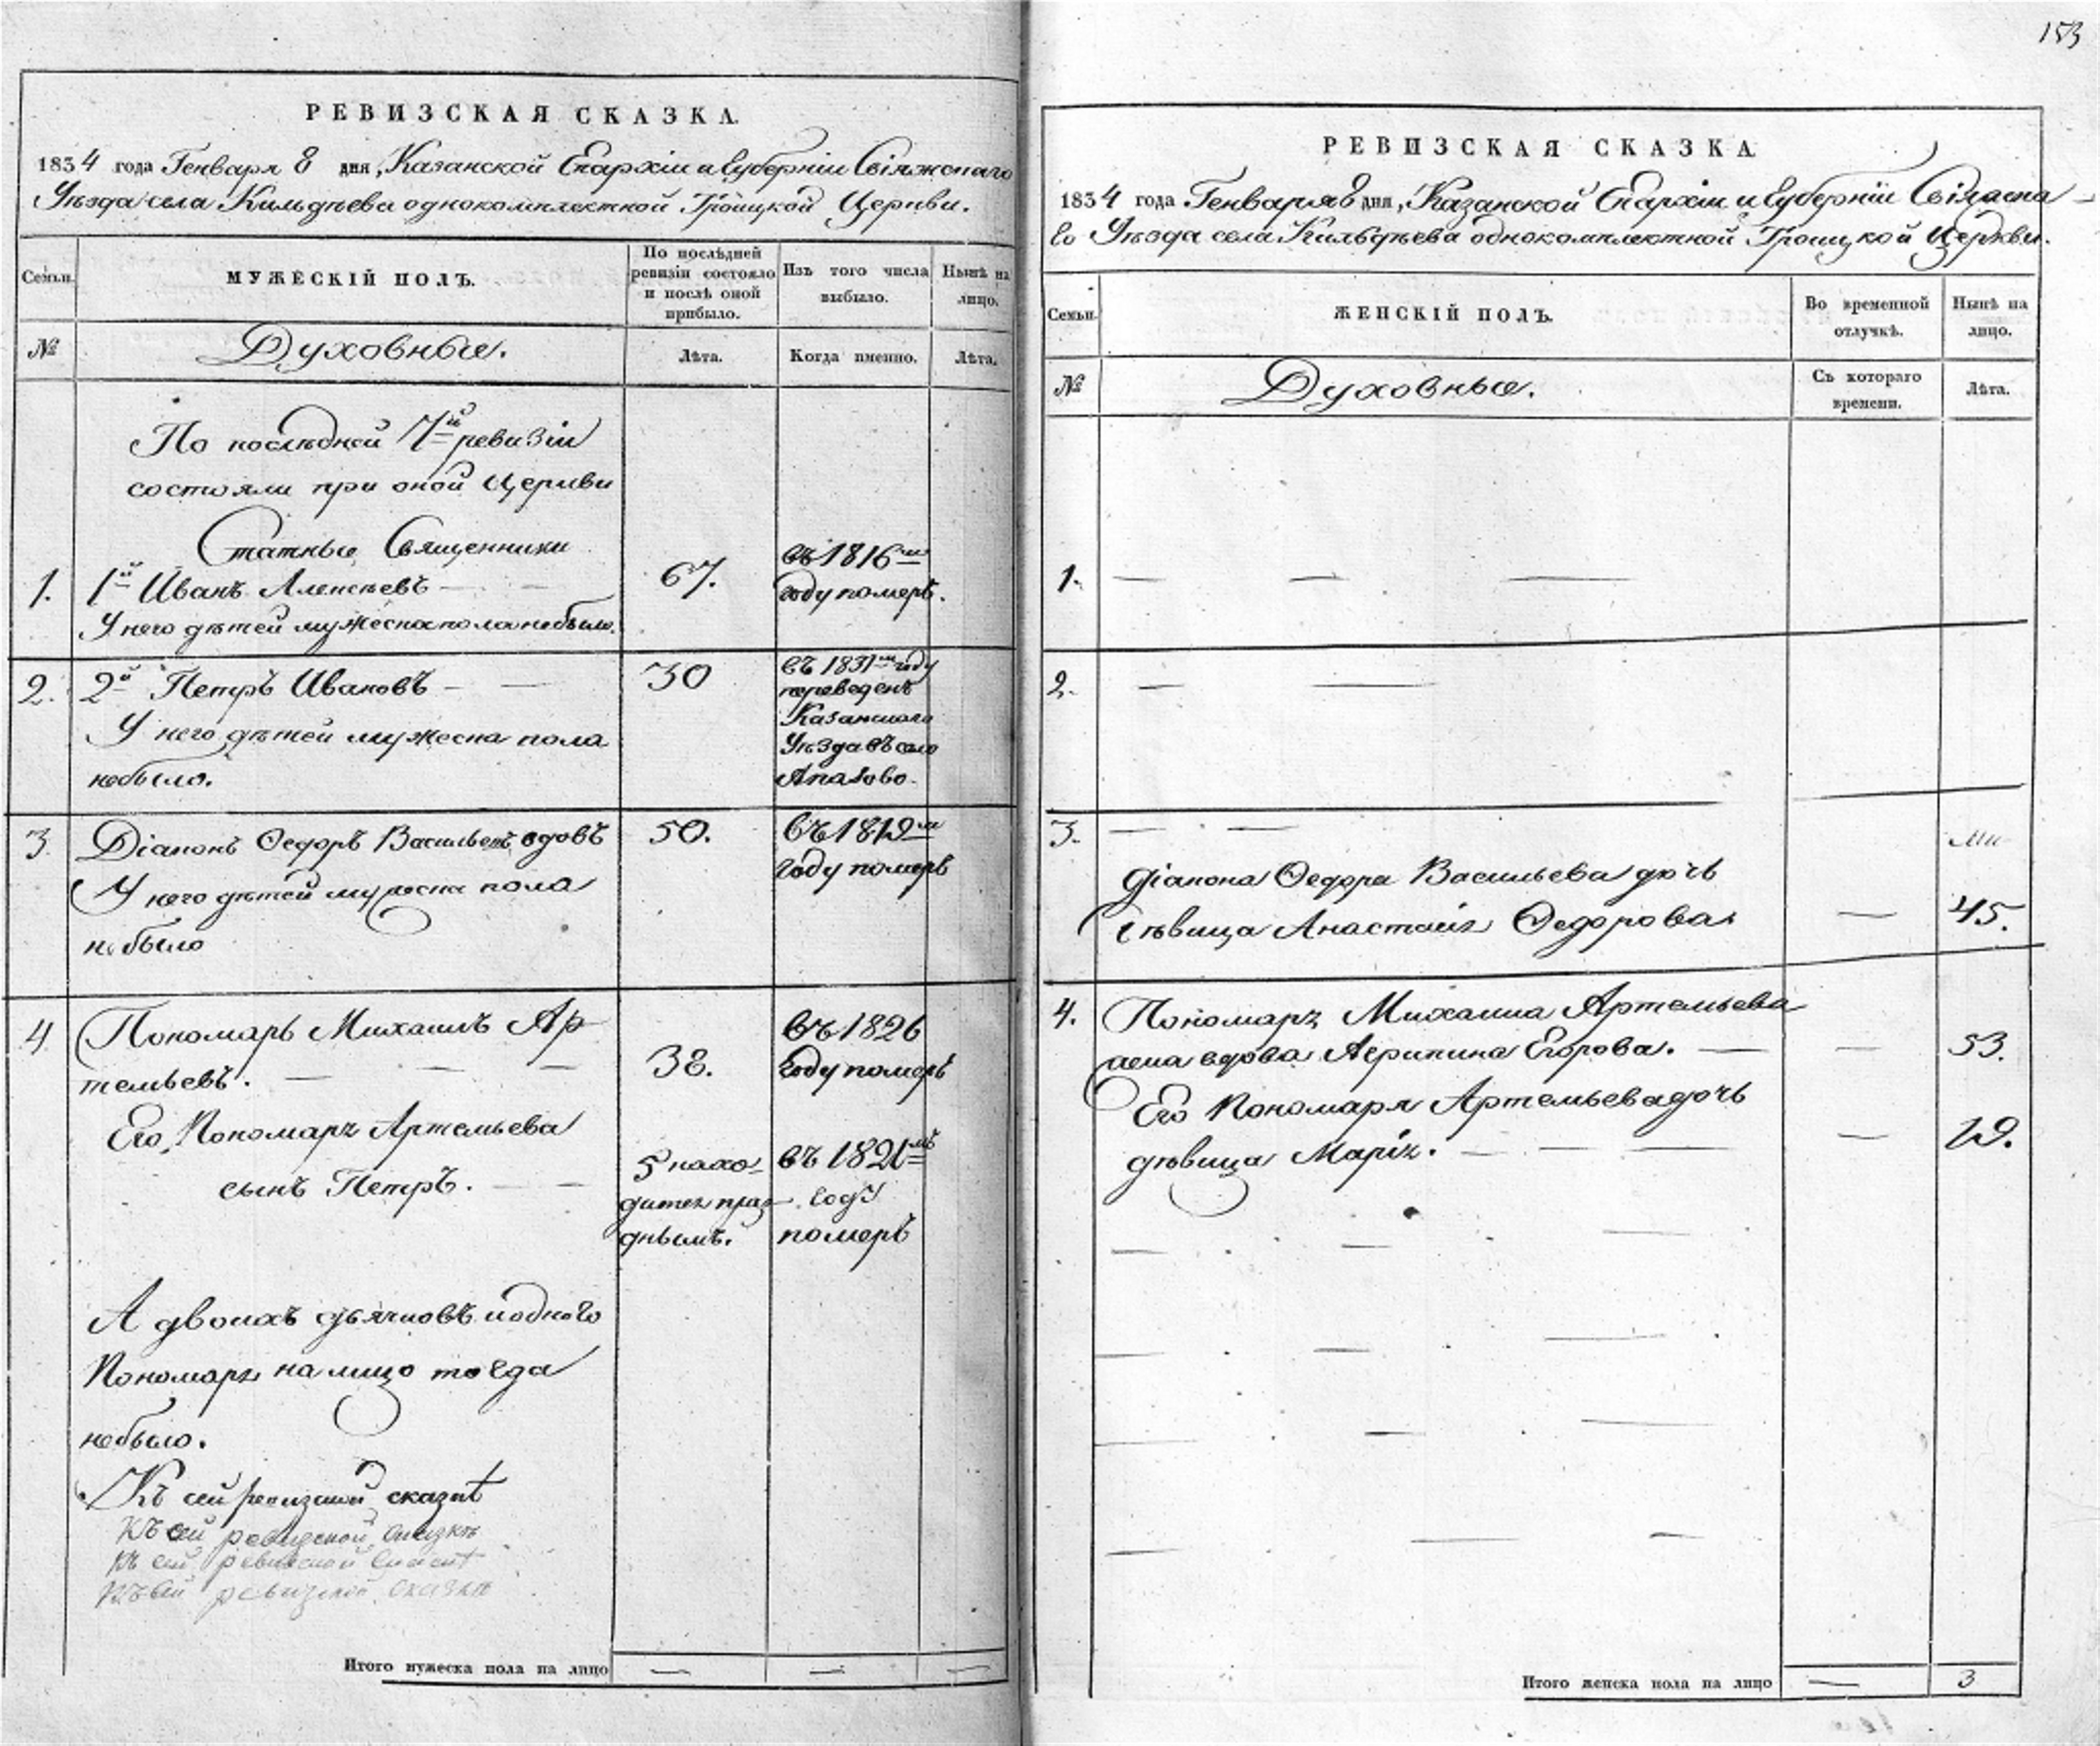 153
РЕВИЗСКАЯ СКАЗКА.
1834 года Генваря 8 дня, Казанской Епархіи и Губерніи Свіяжскаго
Уѣзда села Кильдѣева однокомплектной Троицкой Церкви.
Семьи.
МУЖЕСКІЙ ПОЛЪ.
По послѣдней
ревизіи состояло
и послѣ оной
прибыло.
Изъ того числа
выбыло.
Нынѣ на
лицо.
№
Духовные.
Лѣта.
Когда именно.
Лѣта.
По послѣдней 7й ревизіи
состояли при оной Церкви
Статные Священники
1.
1й Иванъ Алексѣевъ — —
67.
въ 1816м
году померъ.
У него дѣтей мужеска пола небыло.
2.
2й Петръ Ивановъ — —
30
въ 1831м году
переведенъ
Казанскаго
Уѣзда въ село
Апазово.
У него дѣтей мужеска пола
небыло.
3
Діаконъ Ѳедоръ Васильевъ вдовъ
50.
въ 1819м
году померъ
У него дѣтей мужеска пола
небыло
4
Пономарь Михаилъ Ар-
темьевъ. — — —
38.
въ 1826
году померъ
Его Пономаря Артемьева
сынъ Петръ. — —
5 нахо-
дится праз-
днымъ.
въ 1821мъ
году
померъ
А двоихъ дьячковъ и одного
Пономаря на лицо тогда
небыло.
Къ сей ревизской сказкѣ
Къ сей ревизской сказкѣ
Къ сей ревизской сказкѣ
Къ сей ревизской сказкѣ
Итого мужеска пола на лицо — — —
РЕВИЗСКАЯ СКАЗКА
1834 года Генваря 8 дня, Казанской Епархіи и Губерніи Свіяжска-
го Уѣзда села Кильдѣева однокомплектной Троицкой Церкви.
Семьи.
ЖЕНСКІЙ ПОЛЪ.
Во временной
отлучкѣ.
Нынѣ на
лицо.
№
Духовные.
Съ котораго
времени.
Лѣта.
1. — — —
2. — —
3. — —
Діакона Ѳедора Васильева дочь
дѣвица Анастасія Ѳедорова
— 45.
4. Пономаря Михаила Артемьева
жена вдова Агрипина Егорова. —
— 53.
Его Пономаря Артемьева дочь
дѣвица Марія. — — —
— 19.
Итого женска пола на лицо — 3